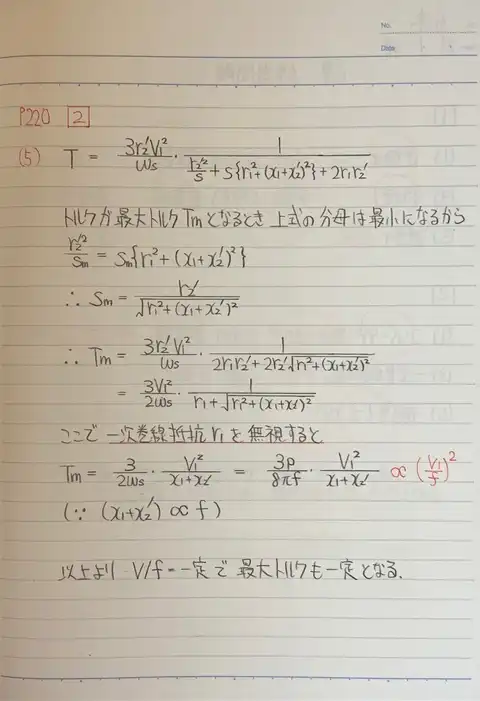 No.
Date
P220 2
(5) T = 3r₂'V₁²/ωs · 1/(r₂'²/s + s{r₁²+(x₁+x₂')²} + 2r₁r₂')
トルクが最大トルクTmとなるとき 上式の分母は最小になるから
r₂'²/sm = sm{r₁² + (x₁+x₂')²}
∴ sm = r₂'/√(r₁² + (x₁+x₂')²)
∴ Tm = 3r₂'V₁²/ωs · 1/(2r₁r₂' + 2r₂'√(r₁²+(x₁+x₂')²))
= 3V₁²/2ωs · 1/(r₁+√(r₁²+(x₁+x₂')²))
ここで 一次巻線抵抗 r₁ を無視すると
Tm = 3/2ωs · V₁²/(x₁+x₂') = 3p/8πf · V₁²/(x₁+x₂') ∝ (V₁/f)²
(∵ (x₁+x₂') ∝ f)
以上より V/f=一定で 最大トルクも一定となる.